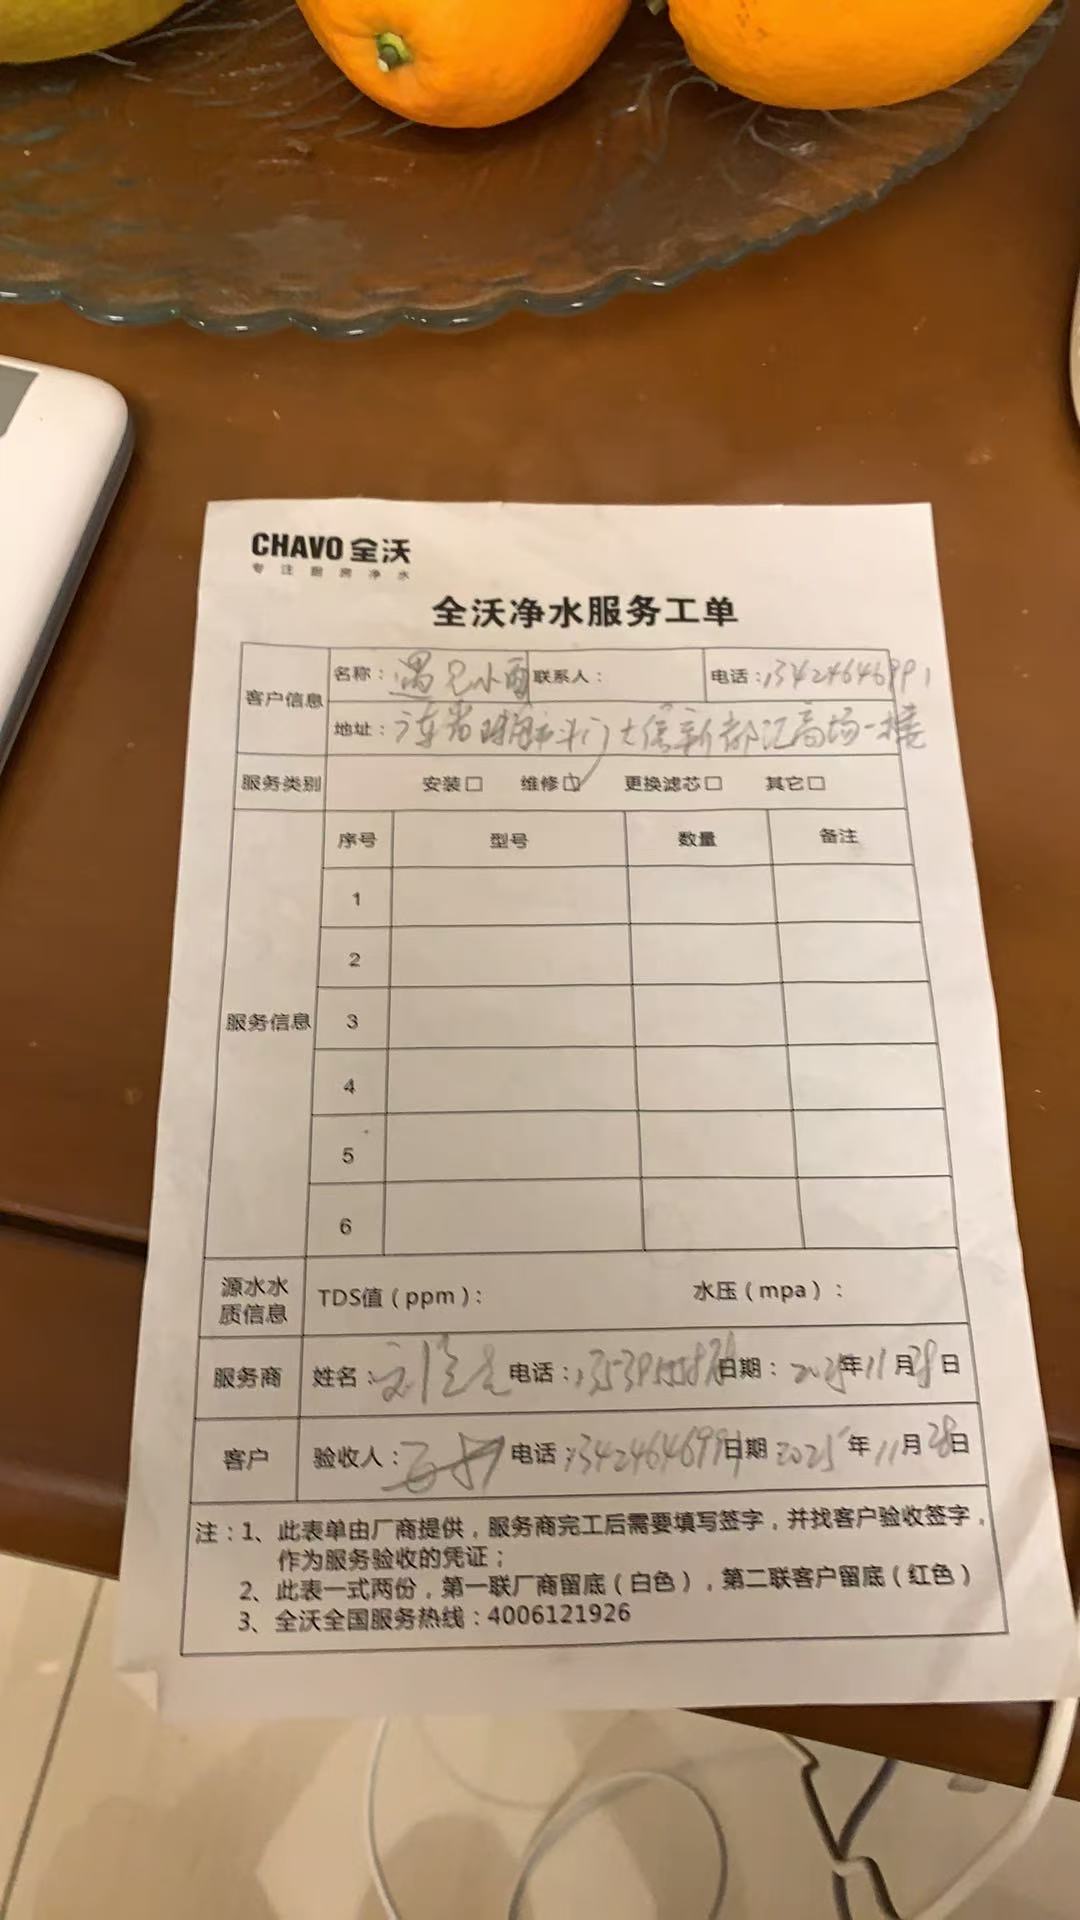 CHAVO 全沃
专注厨房净水
全沃净水服务工单
客户信息 名称：遇见小面 联系人： 电话：13424646991
地址：广东省珠海市斗门大信新都汇商场一楼
服务类别 安装□ 维修☑ 更换滤芯□ 其它□
服务信息 序号 型号 数量 备注
1
2
3
4
5
6
源水水质信息 TDS值（ppm）： 水压（mpa）：
服务商 姓名：刘 电话： 日期：2025年11月28日
客户 验收人： 电话：13424646991 日期 2025年11月28日
注：1、此表单由厂商提供，服务商完工后需要填写签字，并找客户验收签字，
作为服务验收的凭证；
2、此表一式两份，第一联厂商留底（白色），第二联客户留底（红色）
3、全沃全国服务热线：4006121926